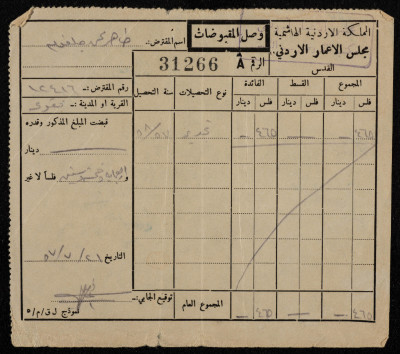 المملكة الاردنية الهاشمية
مجلس الاعمار الاردني
القدس
وصل المقبوضات
الرقم A 31266
اسم المقترض:ـ طاهر
رقم المقترض:ـ ١٢٤١٦
القرية او المدينة:ـ
قبضت المبلغ المذكور وقدره
ـ دينار
فلساً لا غير
التاريخ ٥٧/٧/٢١
المجموع القسط الفائدة نوع التحصيلات سنة التحصيل
فلس دينار فلس دينار فلس دينار
٤٦٥ ـ ـ ٤٦٥ ـ ٥٨/٥٧
٤٦٥ ـ ـ ٤٦٥ ـ المجموع العام
توقيع الجابي:ـ
نموذج ل/ق/م/٥